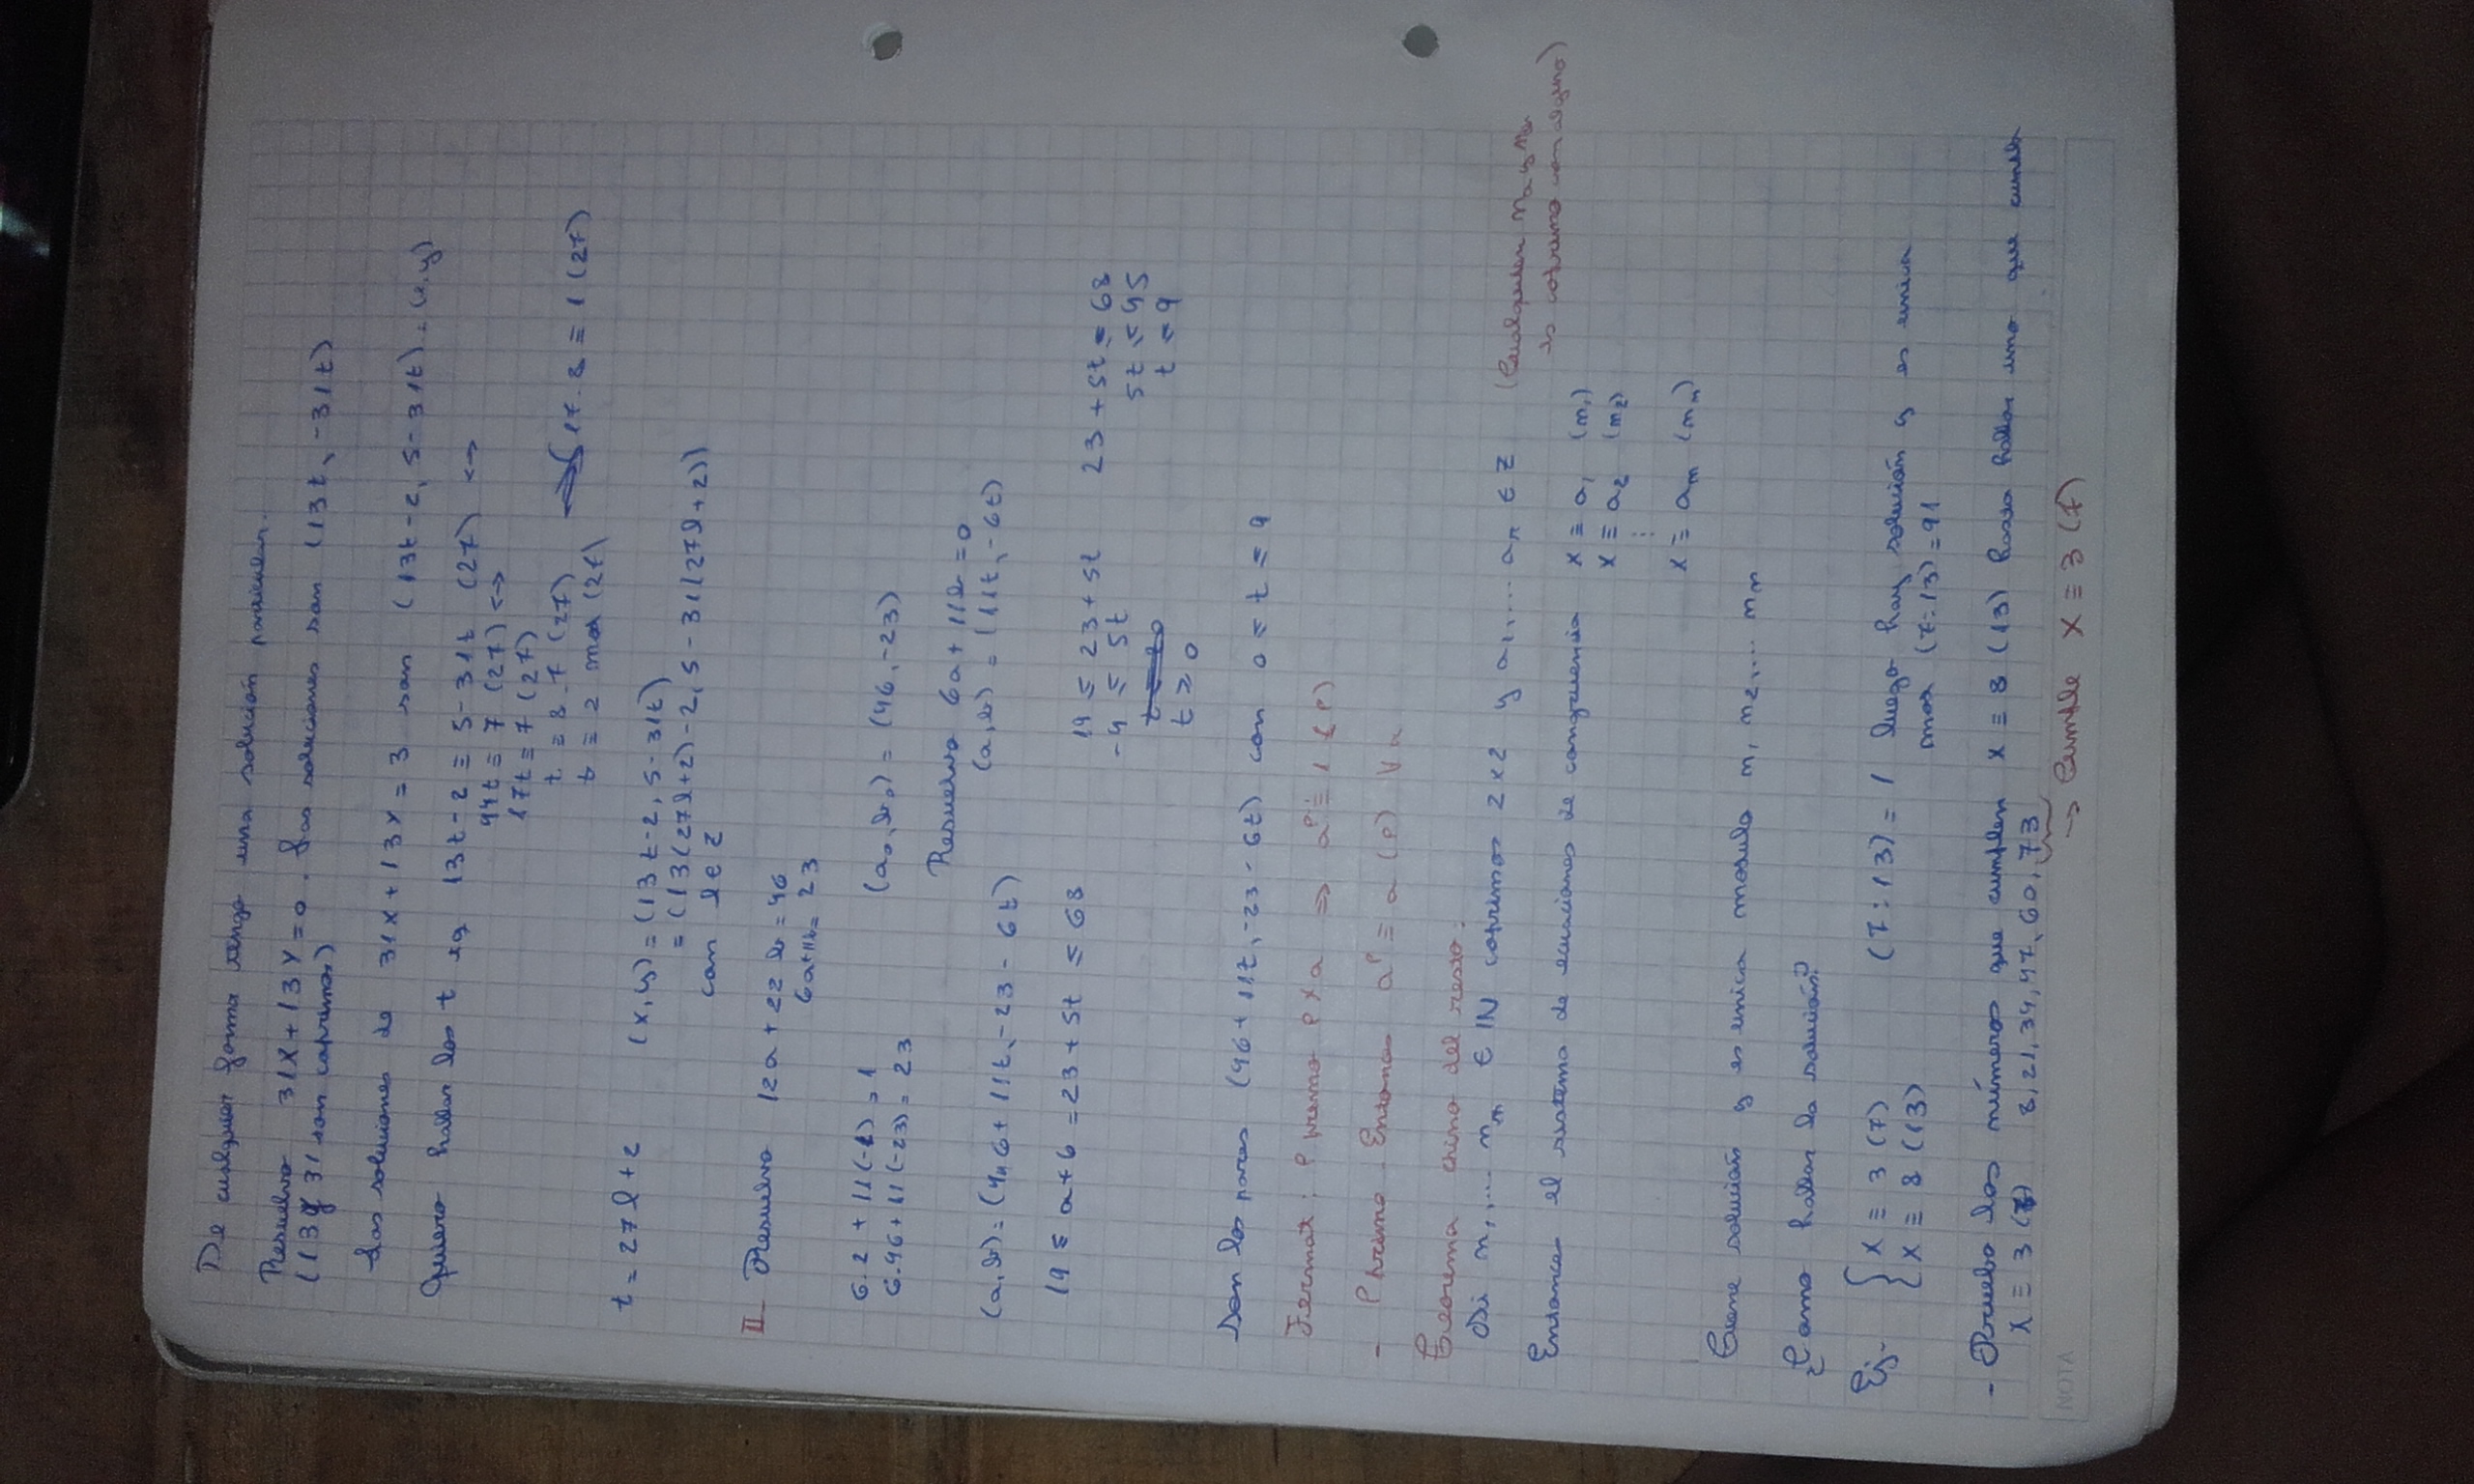 De cualquier forma tengo una solución particular.
Resuelvo 31X + 13Y = 0. Las soluciones son (13t, -31t)
(13 y 31 son coprimos)
Las soluciones de 31X + 13Y = 3 son (13t - 2, 5 - 31t) = (x, y)
Quiero hallar los t tq 13t - 2 ≡ 5 - 31t (27) <->
44t ≡ 7 (27) <->
17t ≡ 7 (27)
t ≡ 8 . 7 (27) 17 . 8 ≡ 1 (27)
t ≡ 2 mod (27)
t = 27l + 2 (x, y) = (13t - 2, 5 - 31t)
= (13(27l + 2) - 2, 5 - 31(27l + 2))
con l ∈ Z
II- Resuelvo 12a + 22b = 46
6a + 11b = 23
6.2 + 11(-1) = 1
6.46 + 11(-23) = 23 (a₀, b₀) = (46, -23)
Resuelvo 6a + 11b = 0
(a, b) = (11t, -6t)
(a, b) = (46 + 11t, -23 - 6t)
19 ≤ a + b = 23 + 5t ≤ 68
19 ≤ 23 + 5t 23 + 5t ≤ 68
-4 ≤ 5t 5t ≤ 45
t ≥ 0 t ≤ 9
Son los pares (46 + 11t, -23 - 6t) con 0 ≤ t ≤ 9
Fermat: P primo P ∤ a ⇒ aᵖ⁻¹ ≡ 1 (P)
- P primo. Entonces aᵖ ≡ a (P) ∀ a
Teorema chino del resto:
Si n₁, .... nₙ ∈ IN coprimos 2x2 y a₁, .... aₙ ∈ Z (Cualquier
es coprimo con alguno)
Entonces el sistema de ecuaciones de congruencia X ≡ a₁ (n₁)
X ≡ a₂ (n₂)
⋮
X ≡ aₙ (nₙ)
Tiene solución y es unica modulo n₁ n₂, .... nₙ
¿Como hallar la solución?
Ej- { X ≡ 3 (7) (7:13) = 1 luego hay solución y es unica
{ X ≡ 8 (13) mod (7:13) = 91
- Pruebo los números que cumplen X ≡ 8 (13) hasta hallar uno que cumpla
X ≡ 3 (7) 8, 21, 34, 47, 60, 73
-> Cumple X ≡ 3 (7)
NOTA